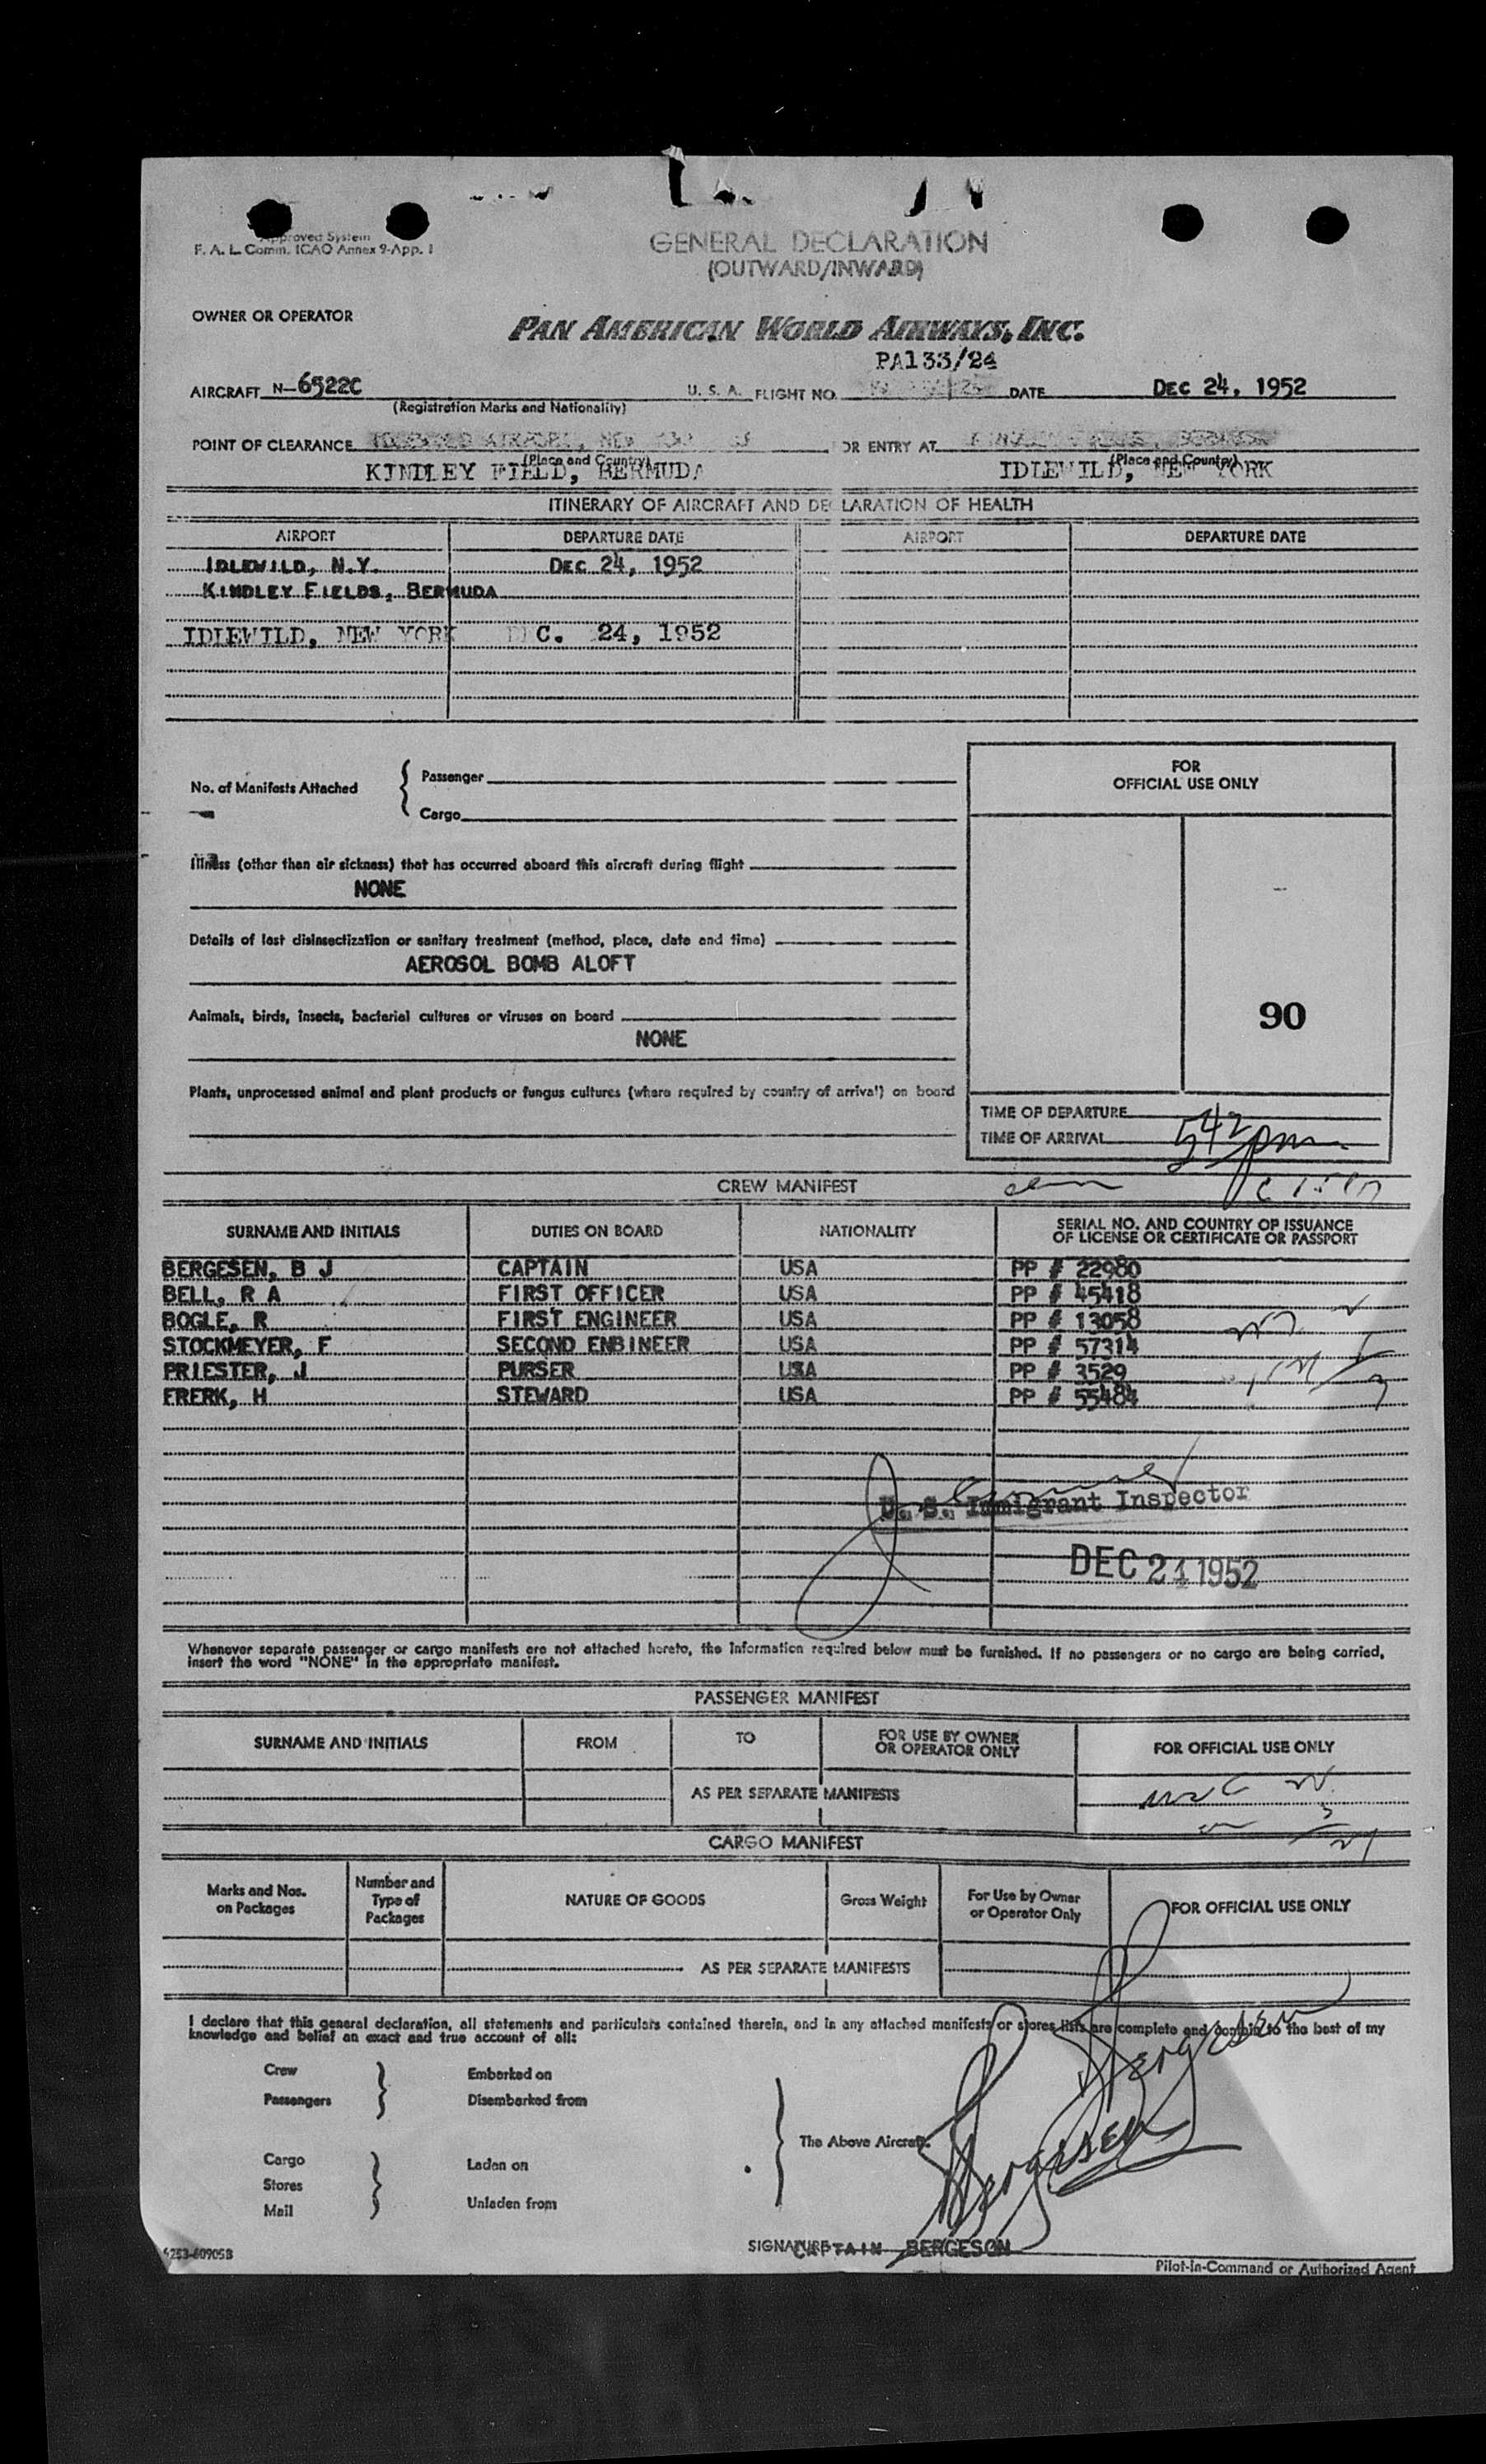 Approved System
F. A. L. Comm. ICAO Annex 9-App. 1
GENERAL DECLARATION
(OUTWARD/INWARD)
OWNER OR OPERATOR
PAN AMERICAN WORLD AIRWAYS, INC.
PA133/24
AIRCRAFT N-6522C U. S. A. FLIGHT NO. DATE DEC 24, 1952
(Registration Marks and Nationality)
POINT OF CLEARANCE OR ENTRY AT
(Place and Country) (Place and Country)
KINDLEY FIELD, BERMUDA IDLEWILD, NEW YORK
ITINERARY OF AIRCRAFT AND DECLARATION OF HEALTH
AIRPORT DEPARTURE DATE AIRPORT DEPARTURE DATE
IDLEWILD, N.Y. DEC 24, 1952
KINDLEY FIELDS, BERMUDA
IDLEWILD, NEW YORK DEC. 24, 1952
No. of Manifests Attached
Passenger
Cargo
FOR
OFFICIAL USE ONLY
Illness (other than air sickness) that has occurred aboard this aircraft during flight
NONE
Details of last disinsectization or sanitary treatment (method, place, date and time)
AEROSOL BOMB ALOFT
Animals, birds, insects, bacterial cultures or viruses on board
NONE
90
Plants, unprocessed animal and plant products or fungus cultures (where required by country of arrival) on board
TIME OF DEPARTURE
TIME OF ARRIVAL 542 pm
CREW MANIFEST
SURNAME AND INITIALS DUTIES ON BOARD NATIONALITY SERIAL NO. AND COUNTRY OF ISSUANCE
OF LICENSE OR CERTIFICATE OR PASSPORT
BERGESEN, B J CAPTAIN USA PP # 22980
BELL, R A FIRST OFFICER USA PP # 45418
BOGLE, R FIRST ENGINEER USA PP # 13058
STOCKMEYER, F SECOND ENBINEER USA PP # 57314
PRIESTER, J PURSER USA PP # 3529
FRERK, H STEWARD USA PP # 55484
U. S. Immigrant Inspector
DEC 24 1952
Whenever separate passenger or cargo manifests are not attached hereto, the information required below must be furnished. If no passengers or no cargo are being carried,
insert the word "NONE" in the appropriate manifest.
PASSENGER MANIFEST
SURNAME AND INITIALS FROM TO FOR USE BY OWNER
OR OPERATOR ONLY FOR OFFICIAL USE ONLY
AS PER SEPARATE MANIFESTS
CARGO MANIFEST
Marks and Nos.
on Packages
Number and
Type of
Packages
NATURE OF GOODS
Gross Weight
For Use by Owner
or Operator Only
FOR OFFICIAL USE ONLY
AS PER SEPARATE MANIFESTS
I declare that this general declaration, all statements and particulars contained therein, and in any attached manifests or stores lists are complete and contain to the best of my
knowledge and belief an exact and true account of all:
Crew
Passengers
Embarked on
Disembarked from
Cargo
Stores
Mail
Laden on
Unladen from
The Above Aircraft.
Bergesen
Bergesen
SIGNATURE CAPTAIN BERGESON
Pilot-in-Command or Authorized Agent